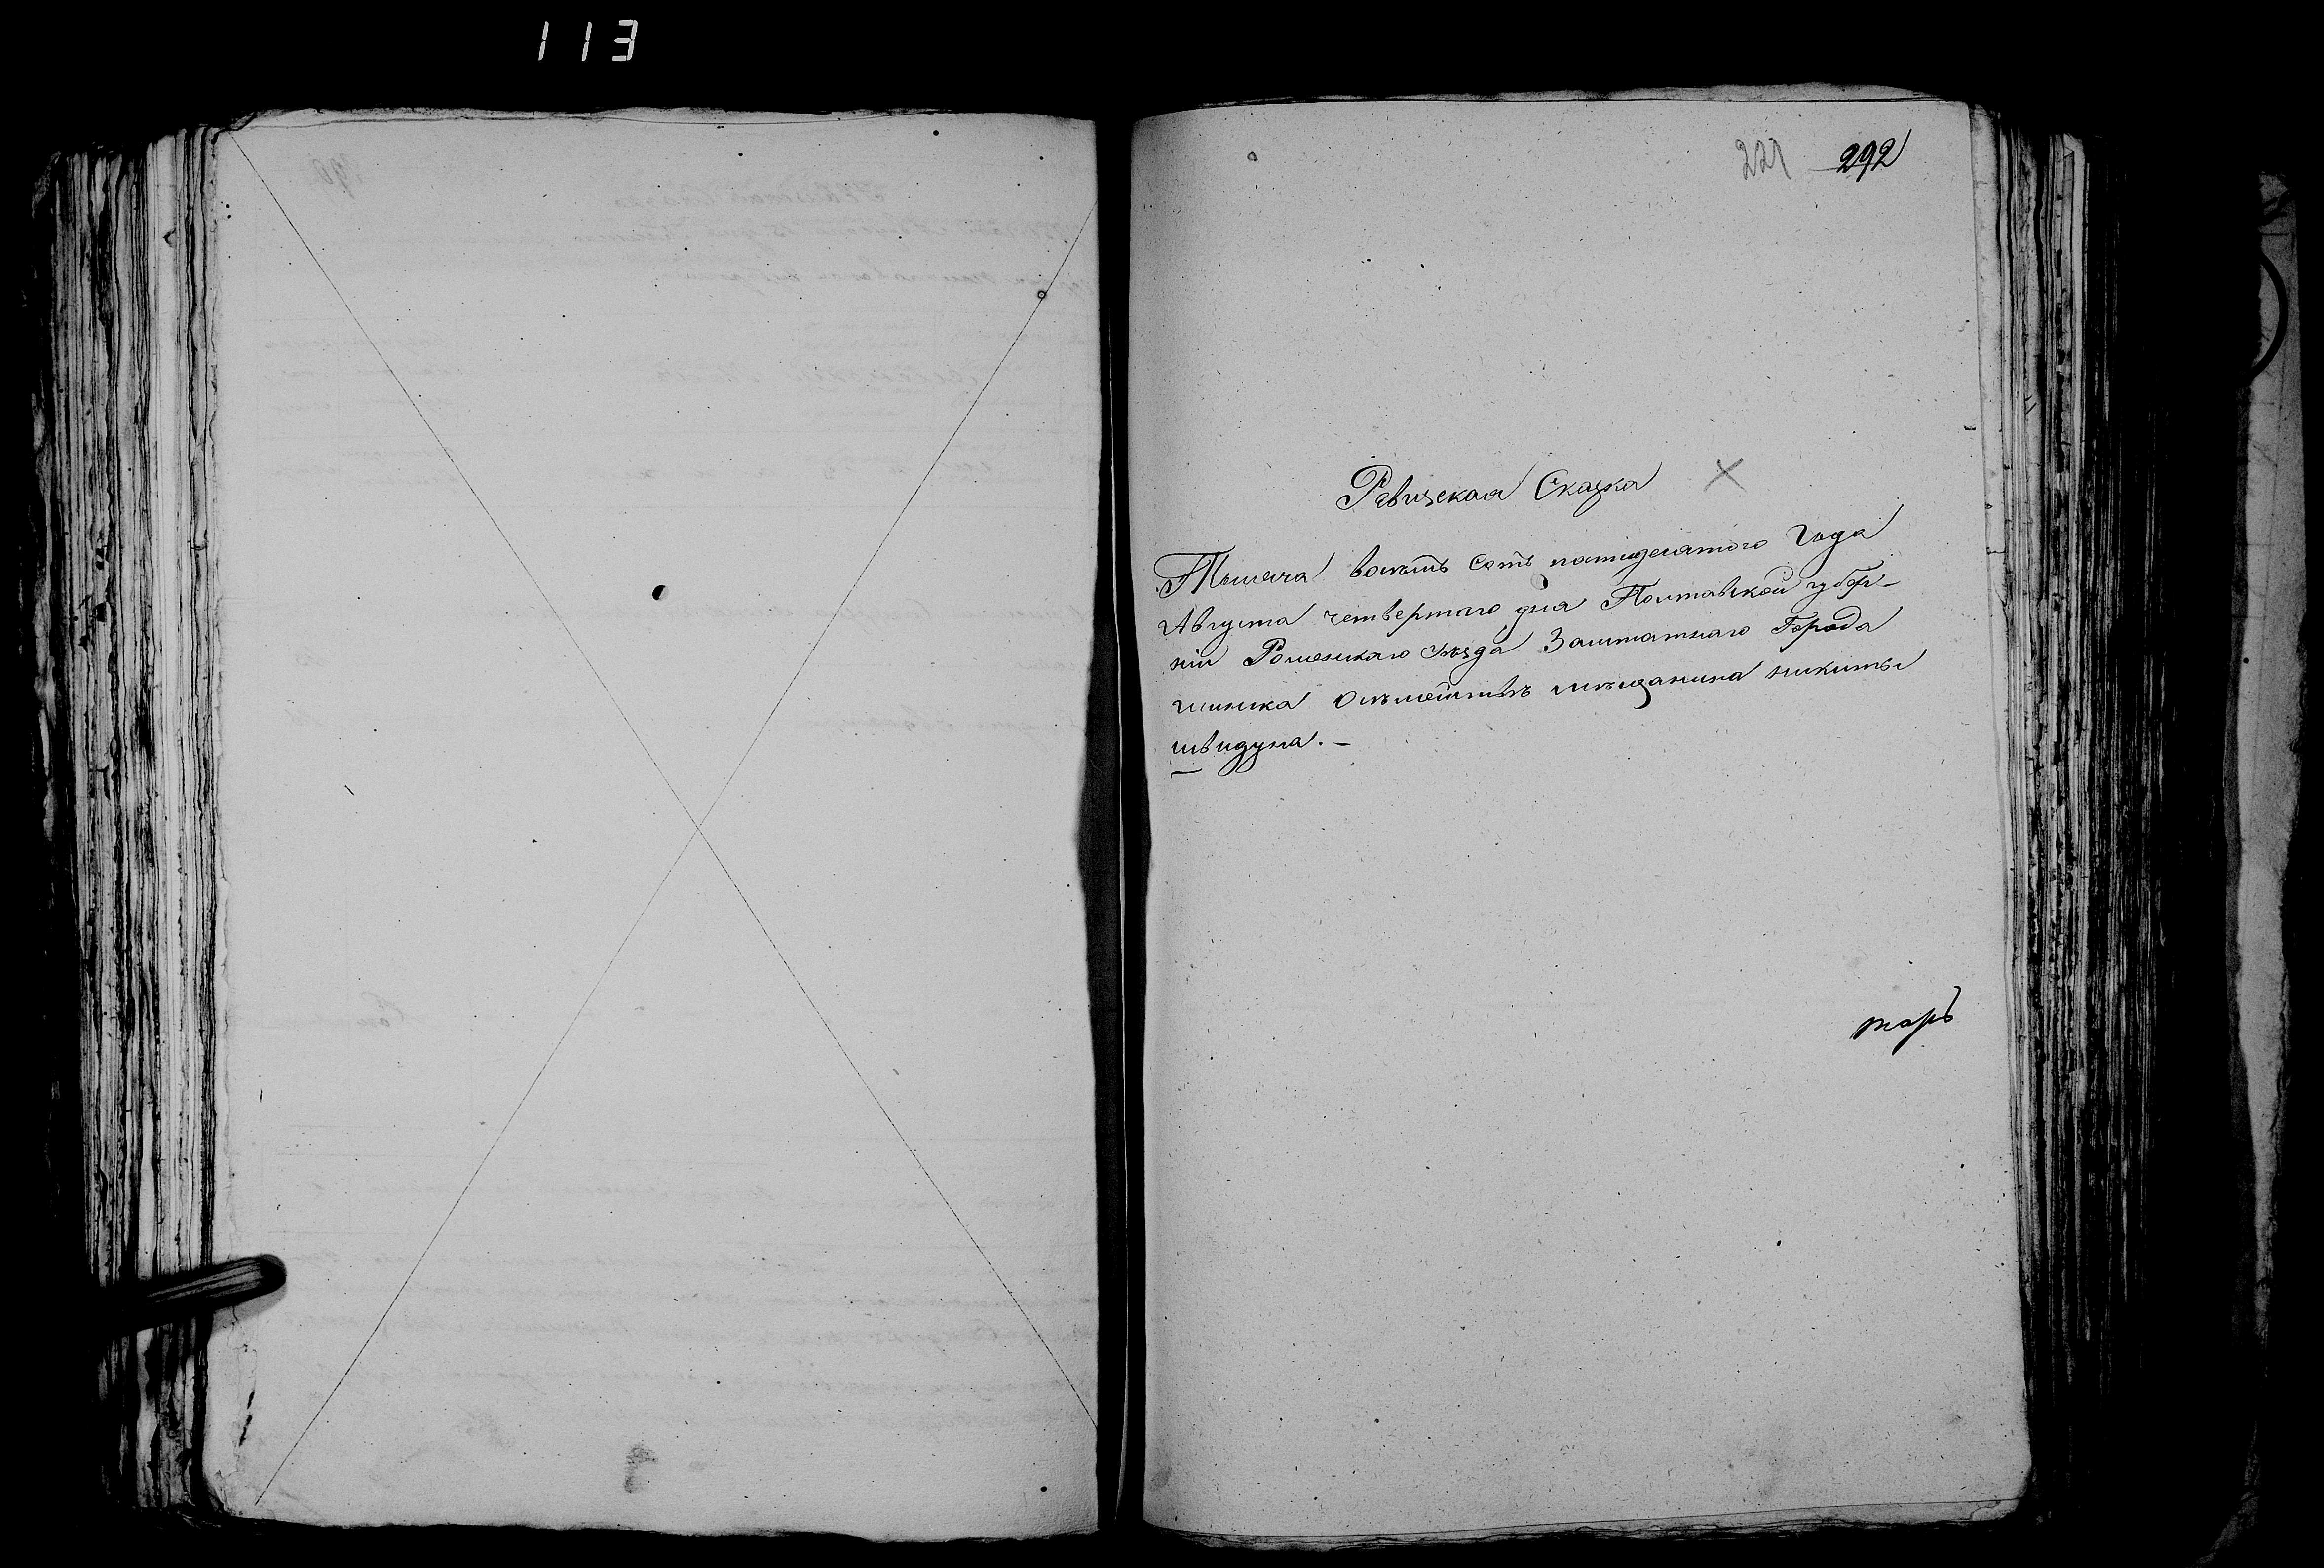 113
221 292
Ревизская Сказка ×
Тысяча восемь сотъ пятидесятого Года
Августа четвертого дня Полтавской губер-
ніи Роменскаго уѣзда Заштатнаго Города
глинска мѣщанина никиты
швидуна. —
тарь